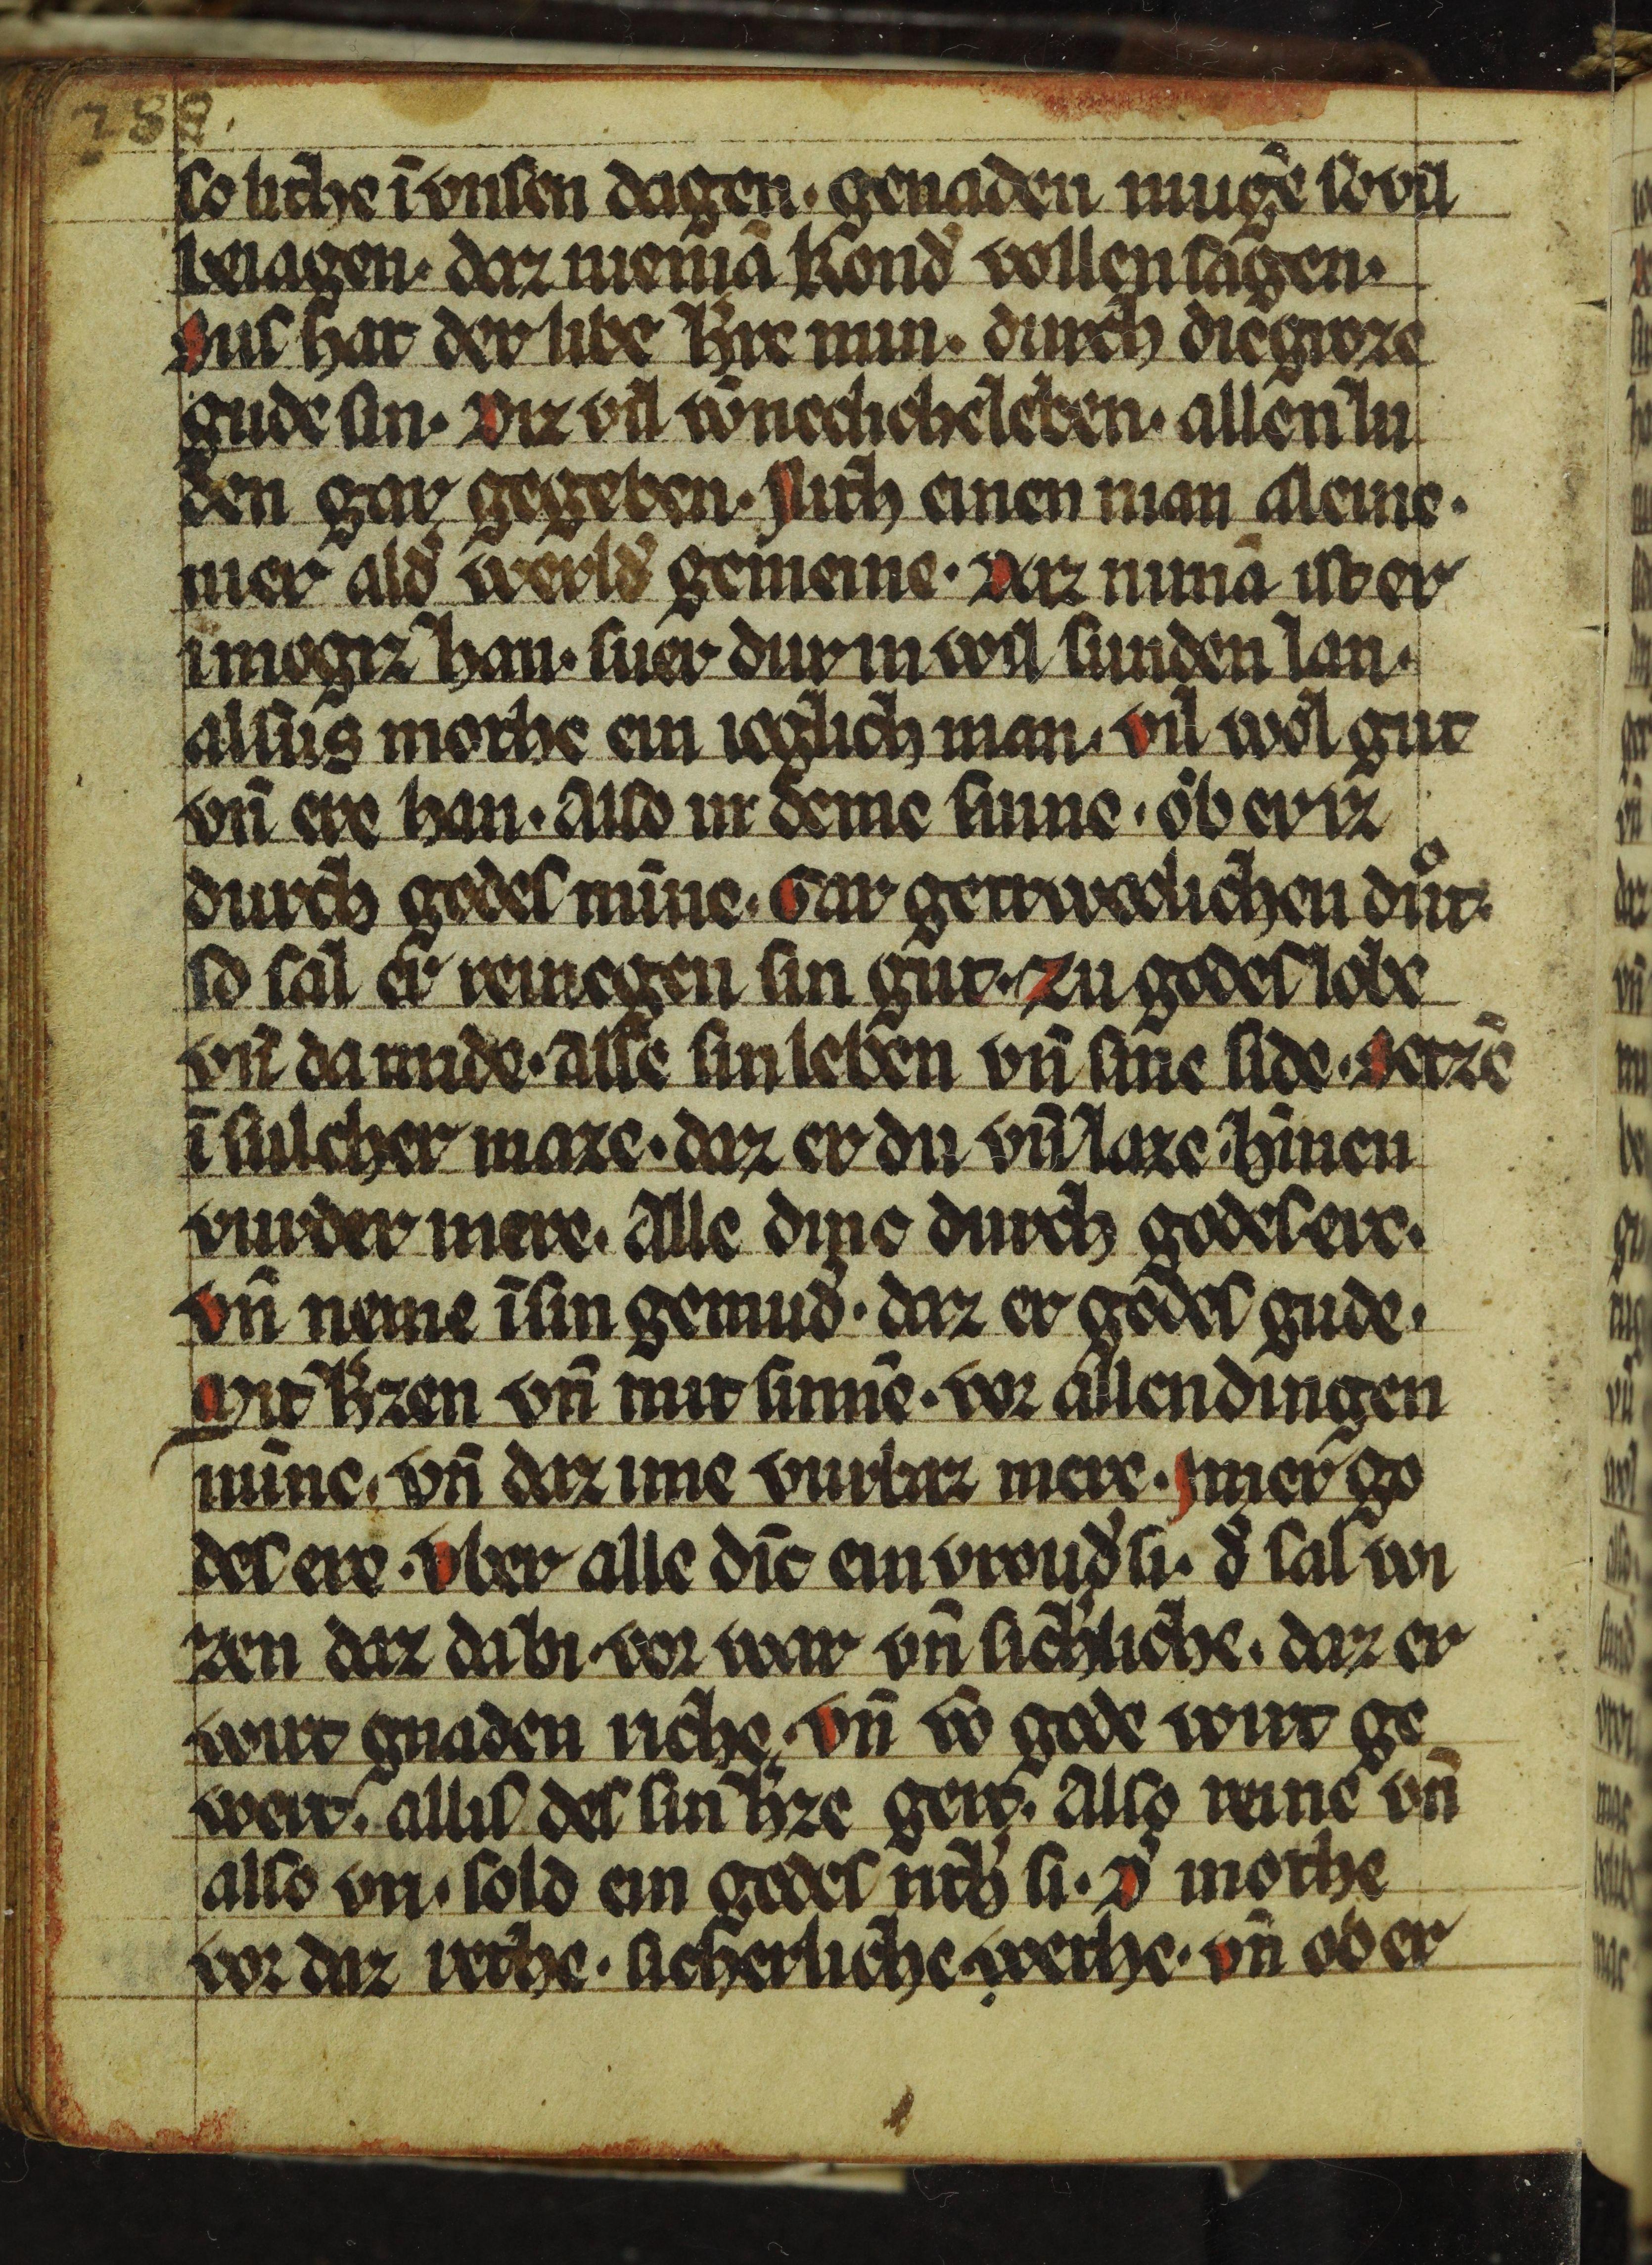 288.
so liche ī vnsen dagen. genaden mugē so vil
beiagen. daz niemā kond' vollen sagen.
Sus hat der libe h're min. durch die groze
gude sin. Diz vil wūneclicheleben. allen lu
den gar gegeben. Nith einen man aleine.
mer ald' werld' gemeine. Daz nimā ist er
imogiz han. suer dur in wil sunden lan.
alsus mothe ein ieglich man. vil wol gut
vn̄ ere han. Also in deme sinne. ob er iz
durch godes mīnne. Gar getrwelichen dut.
so sal er reinegen sin gut. Zu godes lobe
vn̄ da mide. Alse sin leben vn̄ sine side. Setzē
ī sulcher maze. daz er du vn̄ laze. hīnen
vurder mere. Alle dinc durch godes ere.
Vn̄ neme ī sin gemud'. daz er godes gude.
Mit h'zen vn̄ mit sinnē. vor allen dingen
mīne. vn̄ daz ime vurbaz mere. Imer go
des ere. Vber alle dīc ein vroud' si. d' sal wi
zen daz da bi. vor war vn̄ sich'liche. daz er
wirt gnaden riche. Vn̄ vō gode wirt ge
wert. allis des sin h'ze gert. Also reine vn̄
also vri. sold ein godes rith' si. D' mothe
vor daz rethe. sicherliche wethe. vn̄ ob er